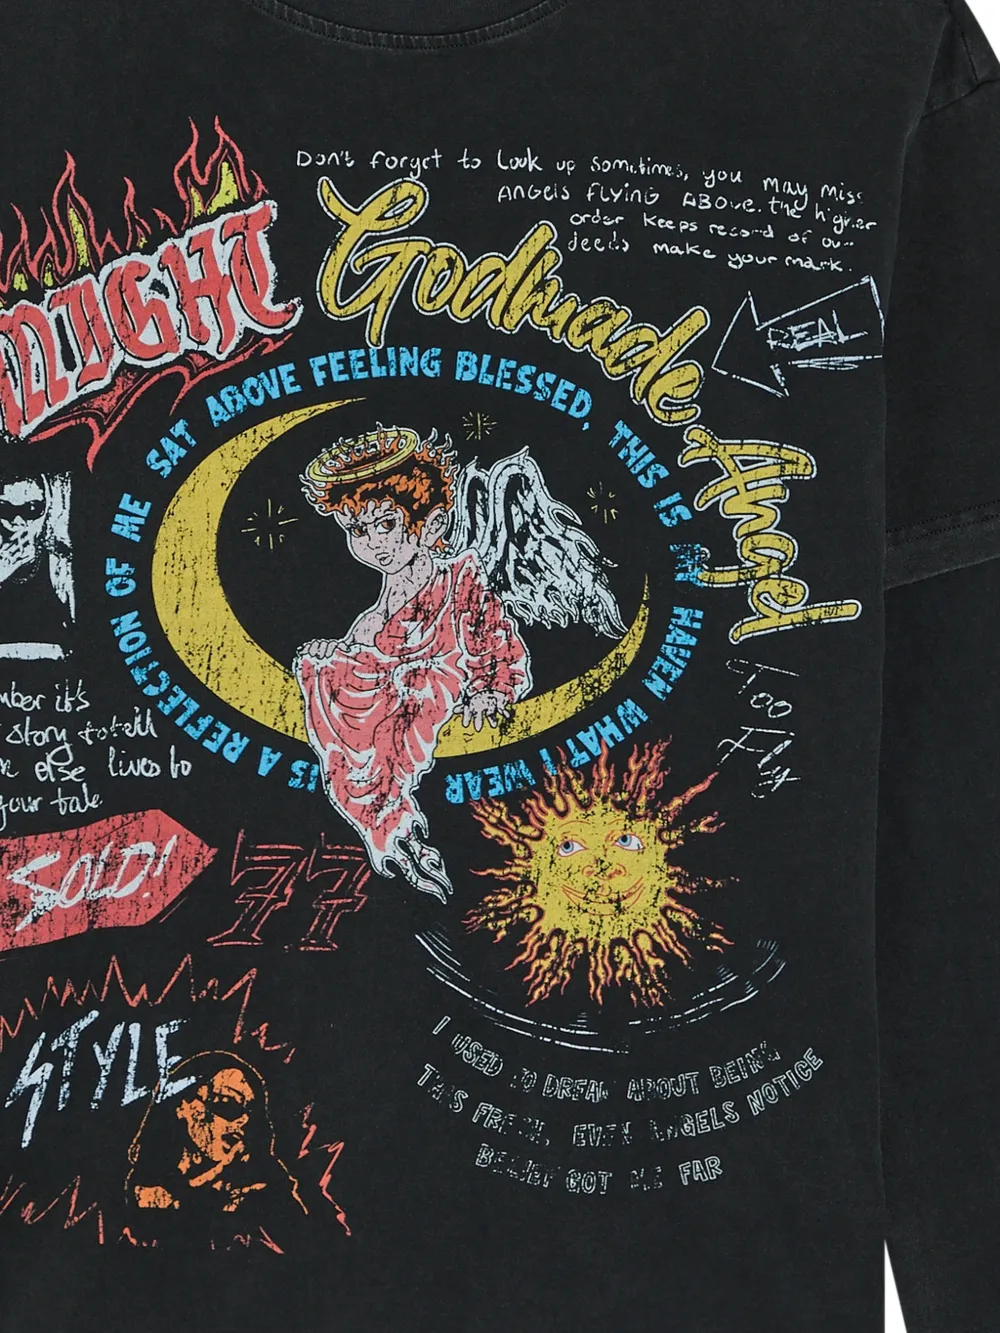 Don't forget to Look up sometimes, you may miss
ANGELS FLYING ABOVE. the higher
order keeps record of our
deeds make your mark.
MIGHT
Godmade
Angel
REAL
SAT ABOVE FEELING BLESSED, THIS IS MY HAVEN WHAT I WEAR IS A REFLECTION OF ME
Too
Fly
mber it's
story to tell
else lives to
your tale
SOLD!
77
STYLE
I USED TO DREAM ABOUT BEING
THIS FRESH, EVEN ANGELS NOTICE
BELIEF GOT ME FAR